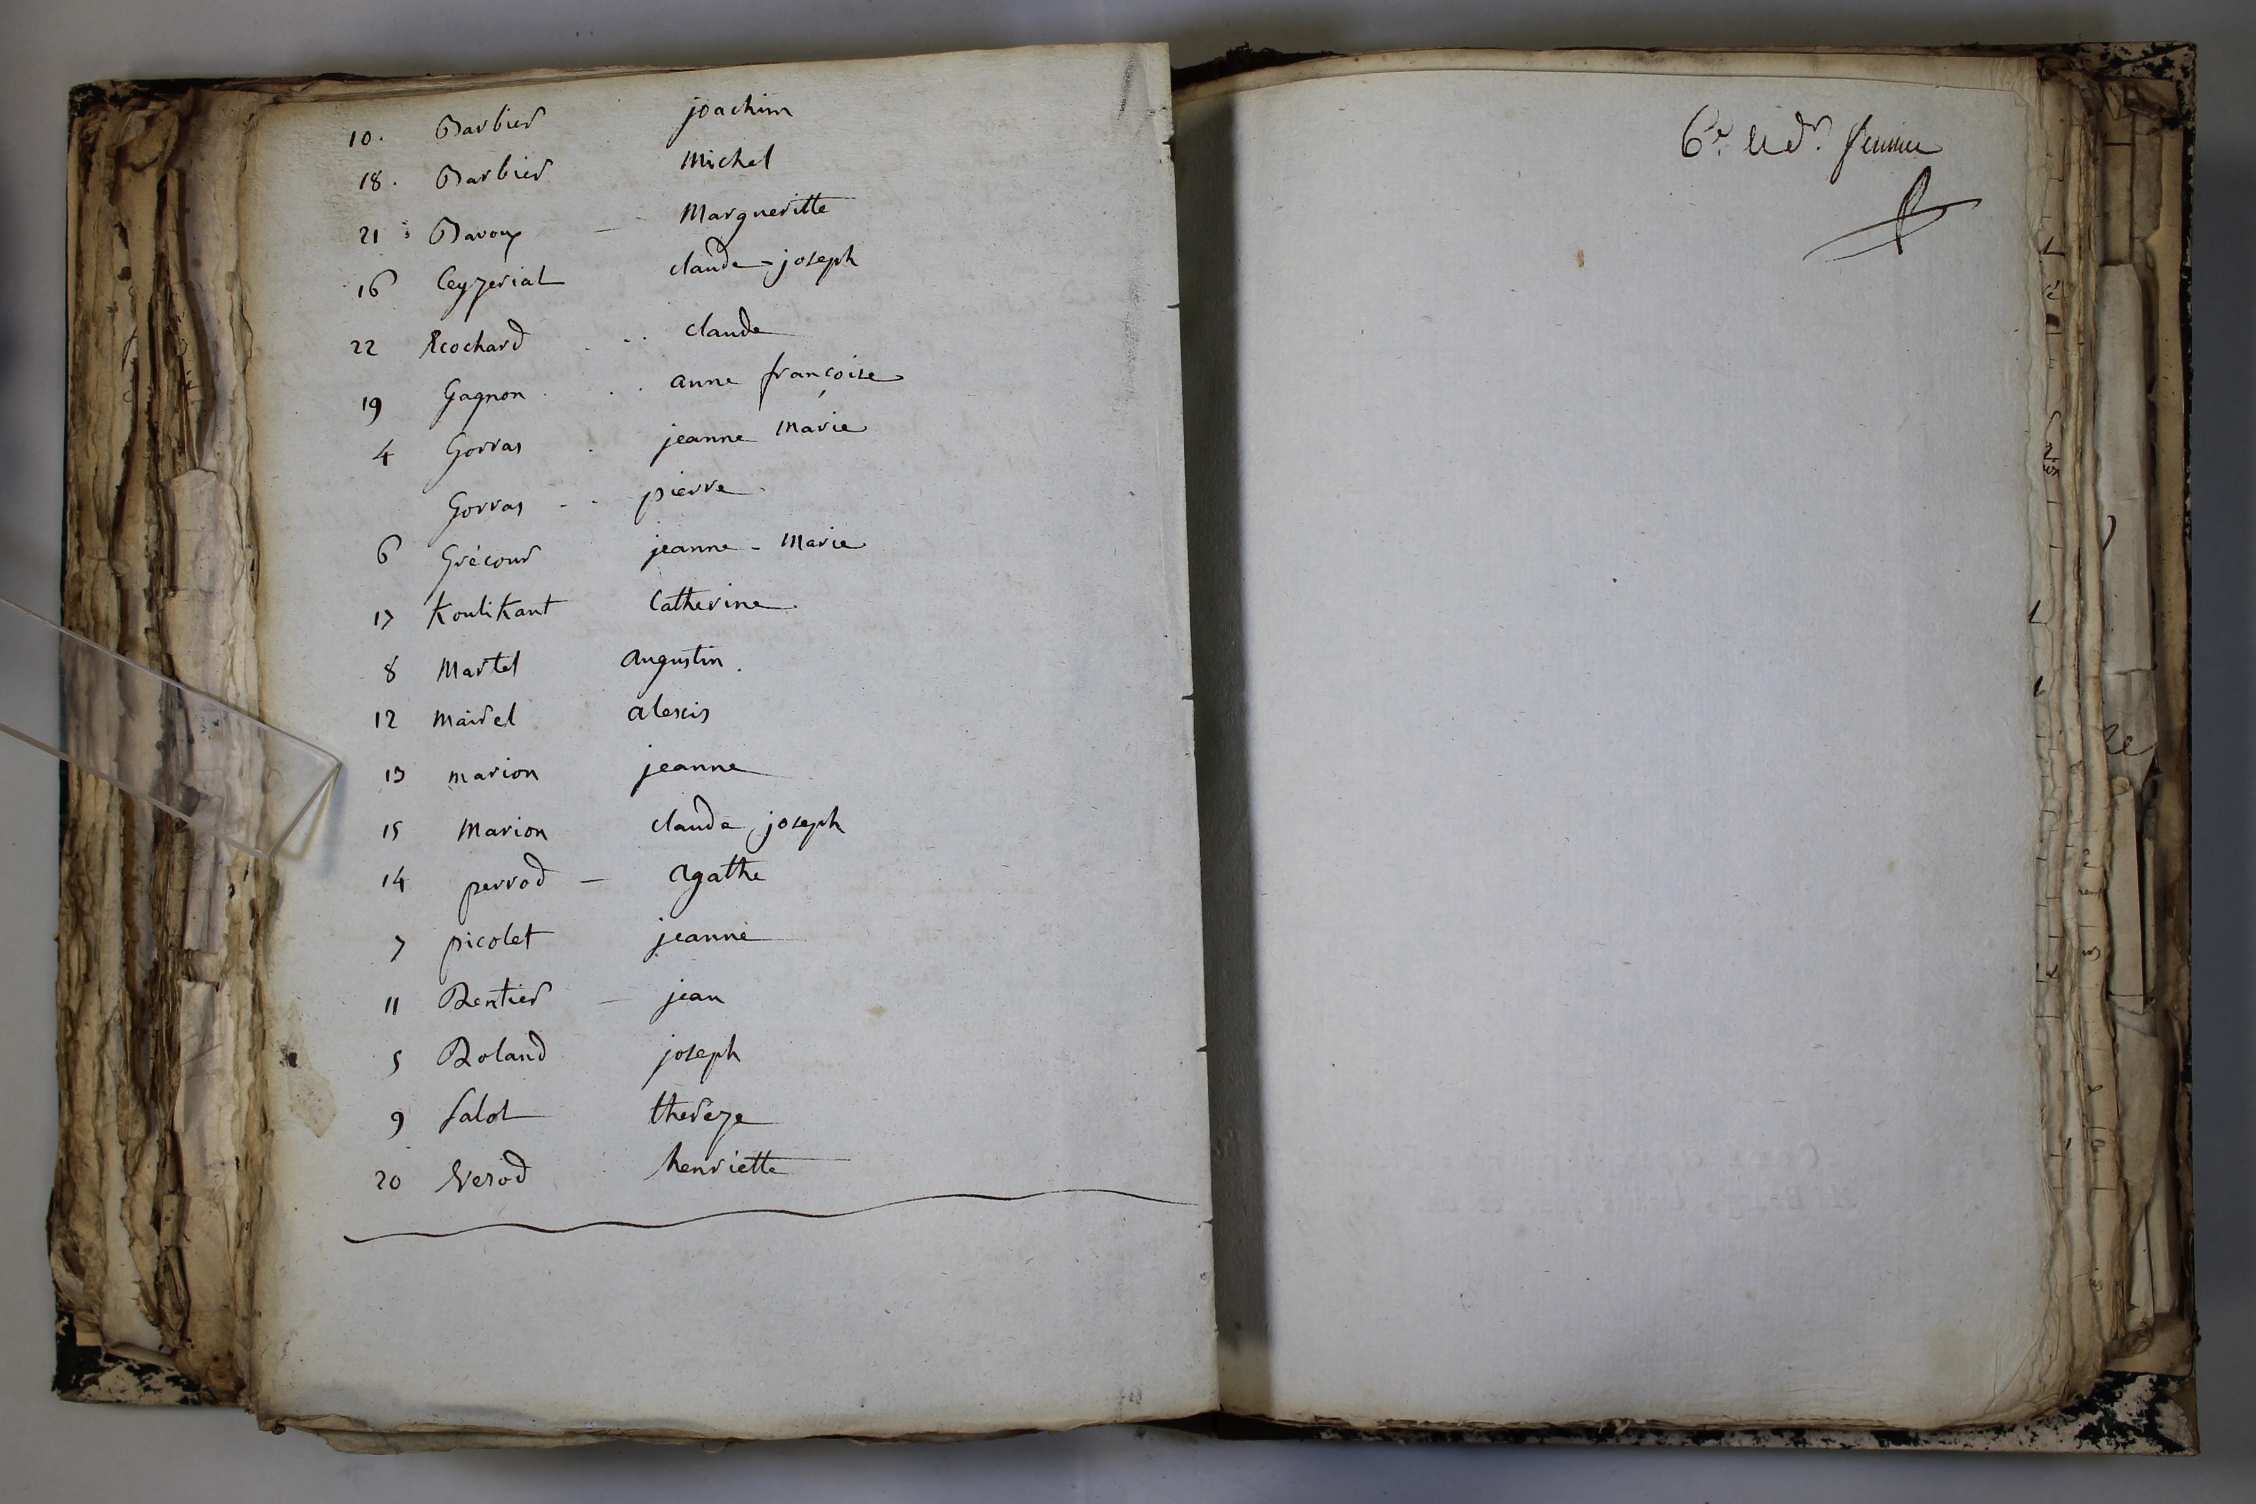 10. Barbier joachim
18. Barbier Michel
21 : Baroux — Margueritte
16 Ceyzeriat claude-joseph
22 Ecochard . . . claude
19 Gagnon . . . anne françoise
4 Gorras . jeanne Marie
Gorras - - pierre
6 Grécour jeanne - Marie
17 KouliKant Catherine
8 Martel Augustin.
12 Mairel alexis
13 marion jeanne
15 Marion claude joseph
14 perrod — Agathe
7 picolet jeanne
11 Rentier — jean
5 Roland joseph
9 Salot thereze
20 Verod henriette
6e.